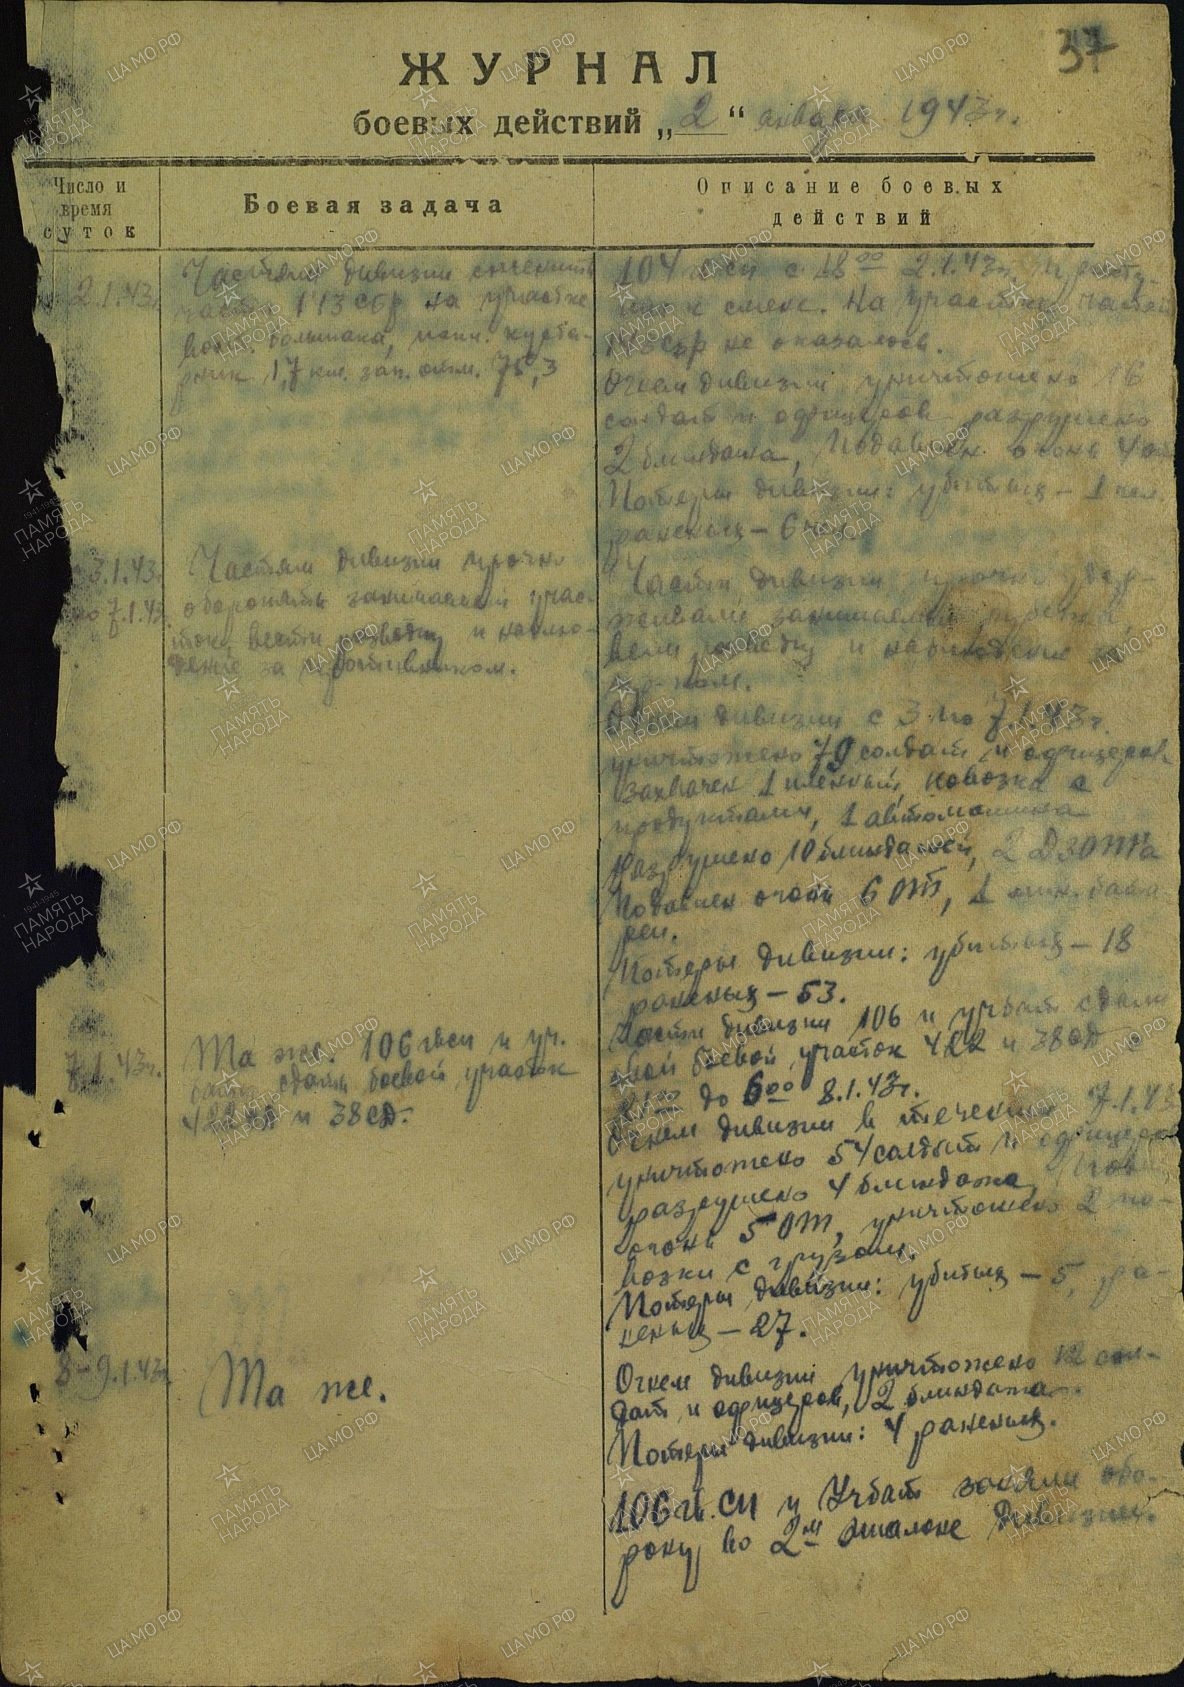 37
ЖУРНАЛ
боевых действий „2“ января 1943 г.
Число и время суток
Боевая задача
Описание боевых действий
2.1.43г.
Частями дивизии сменить
части 143 сбр на участке
вост. большака, 
1,7 км. зап. отм. 75,3
104 гвсп с 18⁰⁰ 2.1.43г. присту-
пил к смене. На участке частей
143 сбр не оказалось.
Огнем дивизии уничтожено 16
солдат и офицеров разрушено
2 блиндажа, Подавлен огонь 4 от
Потери дивизии: убитых – 1 чел.
раненых – 6 чел.
3.1.43г.
по 7.1.43г.
Частям дивизии прочно
оборонять занимаемый учас-
ток, вести разведку и наблю-
дение за противником.
Части дивизии прочно удер-
живали занимаемый рубеж,
вели разведку и наблюдение за
пр-ком.
Огнем дивизии с 3 по 7.1.43г.
уничтожено 79 солдат и офицеров
Захвачен 1 пленный, повозка с
продуктами, 1 автомашина
Разрушено 10 блиндажей, 2 Дзота
Подавлен огонь 6 ОТ, 1 мин. бата-
реи.
Потери дивизии: убитых – 18
раненых – 53.
7.1.43г.
Та же. 106 гвсп и уч.
бат. сдать боевой участок
422 сд и 38 сд.
Части дивизии 106 и учбат сдали
свой боевой участок 422 и 38 сд с
до 6⁰⁰ 8.1.43г.
Огнем дивизии в течении 7.1.43
уничтожено 54 солдат и офицеров
разрушено 4 блиндажа, 
огонь 5 ОТ, уничтожено 2 по-
возки с грузом.
Потери дивизии: убитых – 5, ра-
неных – 27.
8–9.1.43г.
Та же.
Огнем дивизии уничтожено 12 сол-
дат и офицеров, 2 блиндажа.
Потери дивизии: 4 раненых.
106 гв. СП и Учбат заняли обо-
рону во 2м эшалоне дивизии.
ПАМЯТЬ НАРОДА
ЦАМО.РФ